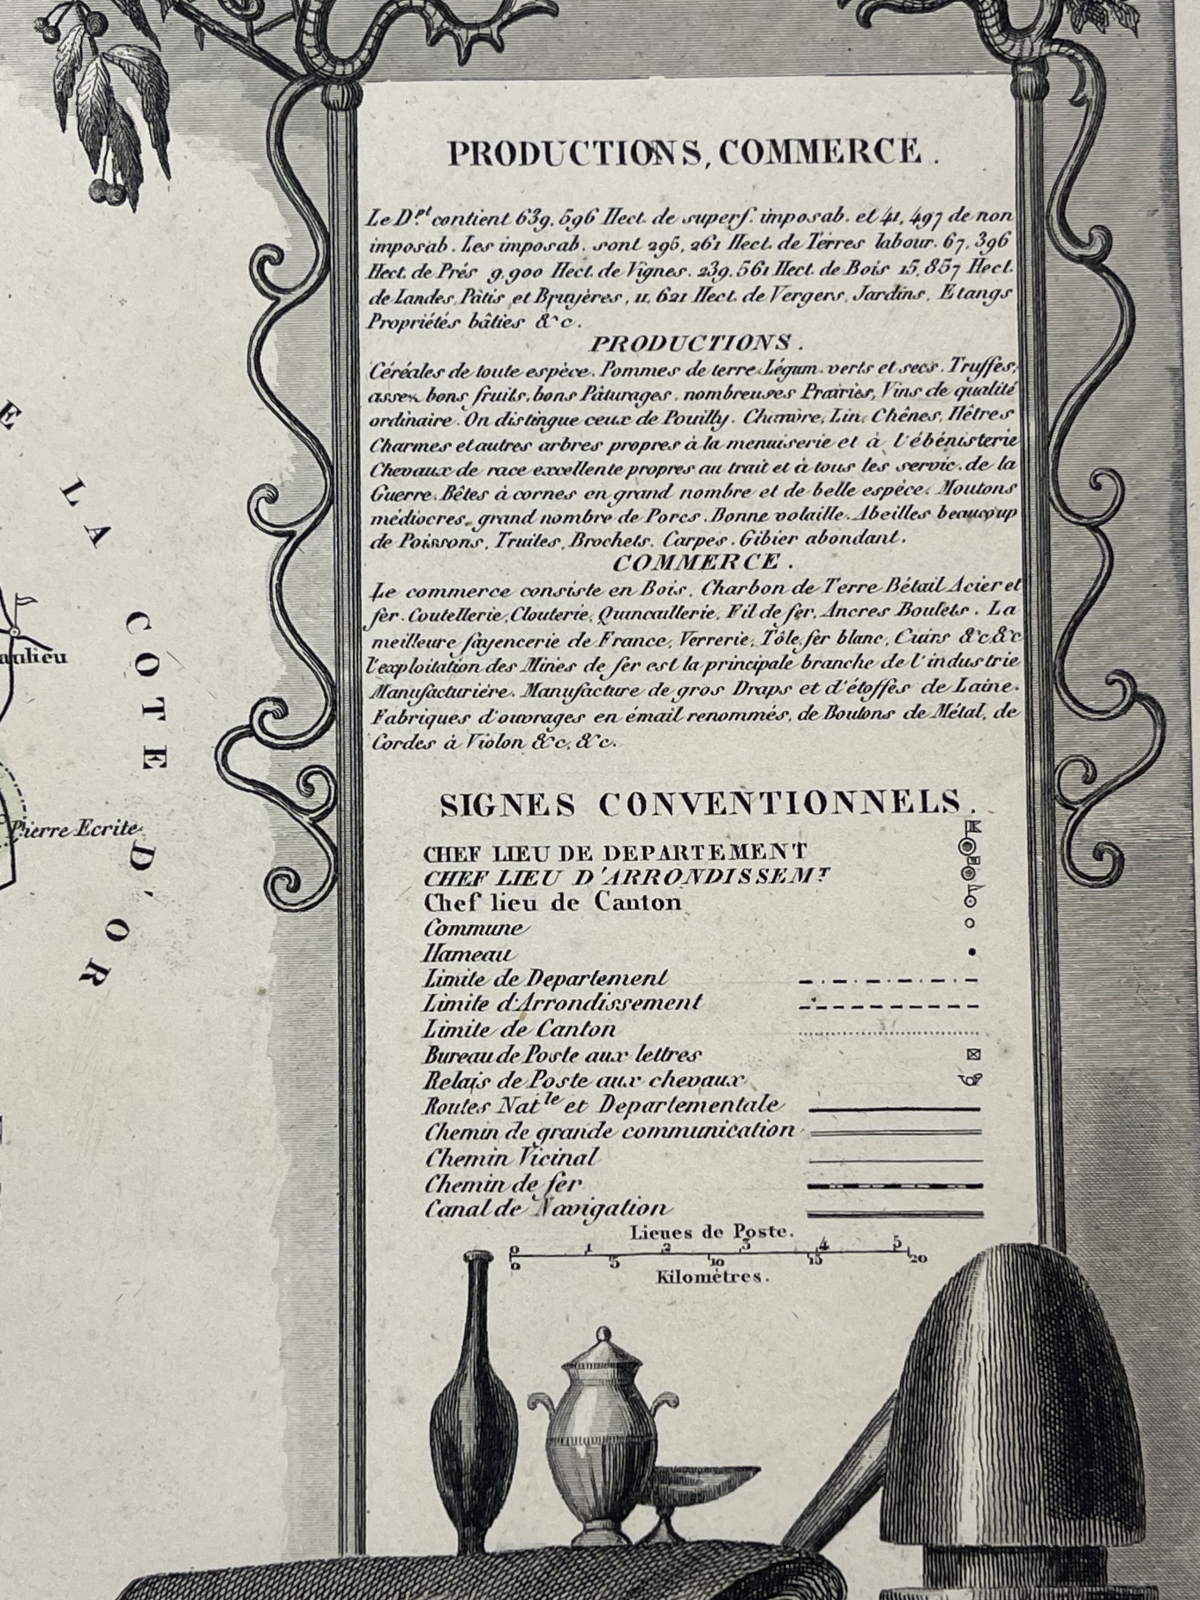 PRODUCTIONS, COMMERCE.
Le Dpt contient 639,596 Hect. de superf. imposab. et 41,497 de non
imposab. Les imposab. sont 295,261 Hect. de Terres labour. 67,396
Hect. de Prés 9,900 Hect. de Vignes. 239,561 Hect. de Bois 15,857 Hect.
de Landes, Pâtis et Bruyères, 11,621 Hect. de Vergers, Jardins, Etangs
Propriétés bâties &c.
PRODUCTIONS.
Céréales de toute espèce. Pommes de terre Légum. verts et secs. Truffes,
assez bons fruits, bons Pâturages, nombreuses Prairies, Vins de qualité
ordinaire. On distingue ceux de Pouilly. Chanvre, Lin, Chênes, Hêtres
Charmes et autres arbres propres à la menuiserie et à l'ébénisterie
Chevaux de race excellente propres au trait et à tous les servic. de la
Guerre. Bêtes à cornes en grand nombre et de belle espèce. Moutons
médiocres, grand nombre de Porcs. Bonne volaille. Abeilles beaucoup
de Poissons, Truites, Brochets, Carpes. Gibier abondant.
COMMERCE.
Le commerce consiste en Bois, Charbon de Terre Bétail Acier et
fer. Coutellerie, Clouterie, Quincaillerie, Fil de fer, Ancres Boulets. La
meilleure fayencerie de France, Verrerie, Tôle, fer blanc, Cuirs &c &c
l'exploitation des Mines de fer est la principale branche de l'industrie
Manufacturière. Manufacture de gros Draps et d'étoffes de Laine.
Fabriques d'ouvrages en émail renommés, de Boutons de Métal, de
Cordes à Violon &c, &c.
SIGNES CONVENTIONNELS.
CHEF LIEU DE DEPARTEMENT
CHEF LIEU D'ARRONDISSEMT
Chef lieu de Canton
Commune
Hameau
Limite de Departement
Limite d'Arrondissement
Limite de Canton
Bureau de Poste aux lettres
Relais de Poste aux chevaux
Routes Natle et Departementale
Chemin de grande communication
Chemin Vicinal
Chemin de fer
Canal de Navigation
Lieues de Poste.
0 1 2 3 4 5
0 5 10 15 20
Kilomètres.
E LA COTE D'OR
aulieu
Pierre Ecrite